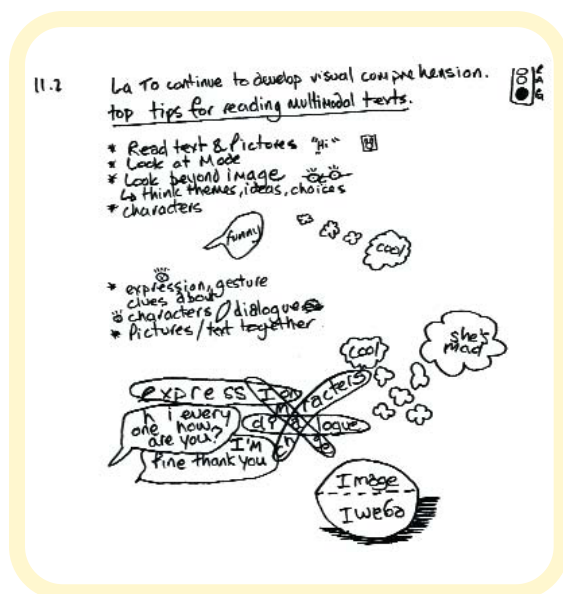 11.2
La To continue to develop visual comprehension.
R
A
G
top tips for reading multimodal texts.
* Read text & Pictures "Hi"
* Look at Mode
* Look beyond image
↳ think themes, ideas, choices
* characters
funny
cool
* expression, gesture
clues about
characters / dialogue
* Pictures / text together
she's
mad
cool
expression
characters
dialogue
image
hi every
one how
are you?
I'M
fine thank you
Image